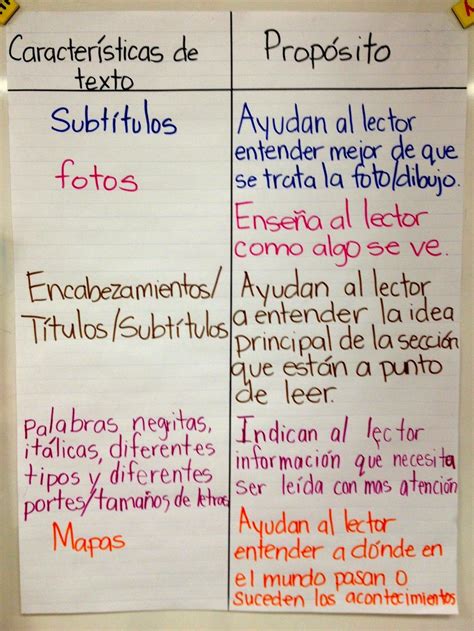 Características de
texto
Propósito
Subtítulos
Ayudan al lector
entender mejor de que
se trata la foto/dibujo.
fotos
Enseña al lector
como algo se ve.
Encabezamientos/
Títulos/Subtítulos
Ayudan al lector
a entender la idea
principal de la sección
que están a punto
de leer.
Palabras negritas,
itálicas, diferentes
tipos y diferentes
portes/tamaños de letras
Indican al lector
información que necesita
ser leída con mas atención
Mapas
Ayudan al lector
entender a dónde en
el mundo pasan o
suceden los acontecimientos